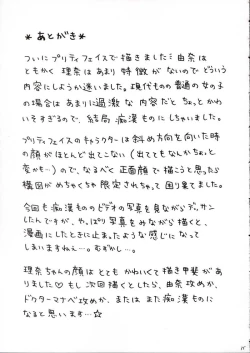 ＊あとがき＊
ついにプリティフェイスで描きました!! 由奈は
ともかく 理奈は あまり 特徴 が ないので どういう
内容にしようか迷いました。現代ものの普通の女の子
の場合は あまりに過激 な 内容 だと ちょっとかわ
いそすぎるので、結局 痴漢 ものにしました。
プリティフェイスのキャラクターは斜め方向を向いた時
の顔がほとんど出てこない (出てても なんかちょっと
変かも…) ので、なるべく 正面顔で 描こうと思ったら
構図がめちゃくちゃ 限定されちゃって 困り果てました。
今回も痴漢もののビデオの写真を見ながらデッサン
したんですが、やっぱり写真をみながら描くと、
漫画にしたときに止まったような感じになって
しまいますねぇ…。むずかし…。
理奈ちゃんの顔はとても かわいくて描き甲斐があ
りました♡ もし次回描くとしたら、由奈攻めか、
ドクターマナベ攻めか、または また痴漢ものに
なると思います…☆